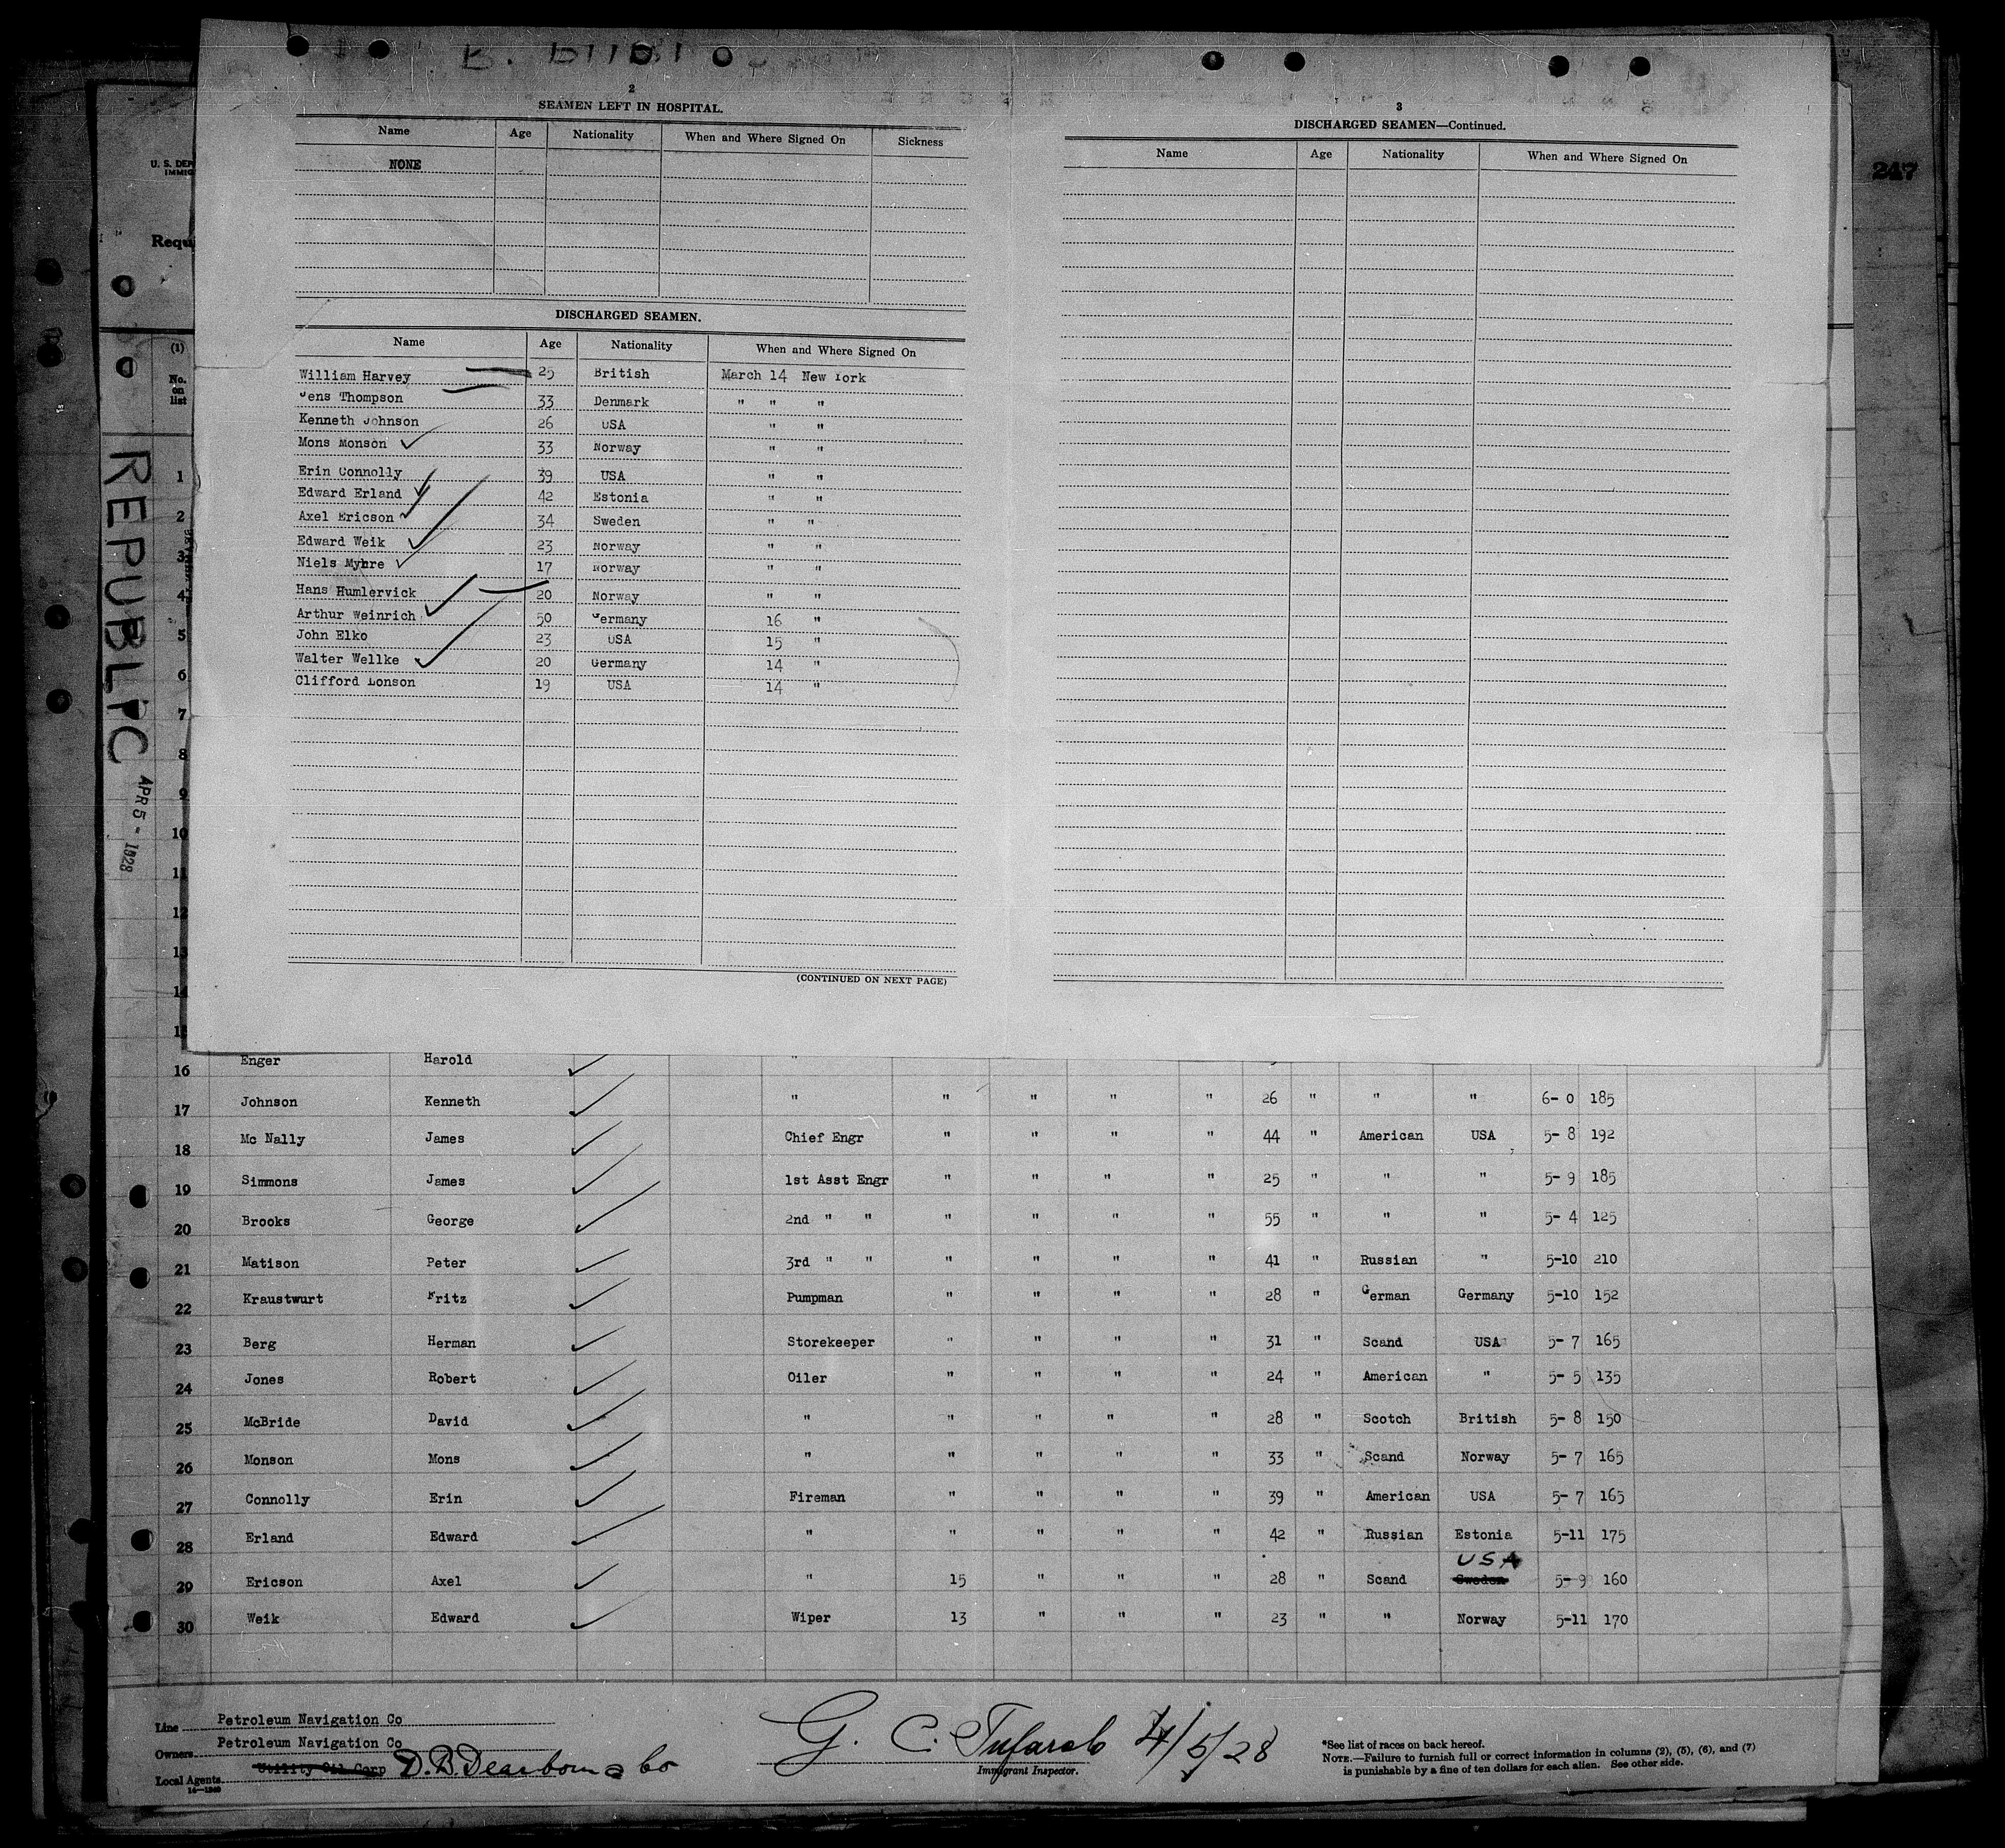 2
SEAMEN LEFT IN HOSPITAL.
Name Age Nationality When and Where Signed On Sickness
NONE
DISCHARGED SEAMEN.
Name Age Nationality When and Where Signed On
William Harvey 25 British March 14 New York
Jens Thompson 33 Denmark " " "
Kenneth Johnson 26 USA " "
Mons Monson 33 Norway " "
Erin Connolly 39 USA " "
Edward Erland 42 Estonia " "
Axel Ericson 34 Sweden " "
Edward Weik 23 Norway " "
Niels Myhre 17 Norway " "
Hans Humlervick 20 Norway " "
Arthur Weinrich 50 Germany 16 "
John Elko 23 USA 15 "
Walter Wellke 20 Germany 14 "
Clifford Lonson 19 USA 14 "
(CONTINUED ON NEXT PAGE)
3
DISCHARGED SEAMEN—Continued.
Name Age Nationality When and Where Signed On
247
U. S. DEP
IMMIG
Requ
(1)
No.
on
list
REPUBLIC
APR 5 - 1928
1
2
3
4
5
6
7
8
9
10
11
12
13
14
15
16 Enger Harold "
17 Johnson Kenneth " " " " " 26 " " " 6- 0 185
18 Mc Nally James Chief Engr " " " " 44 " American USA 5- 8 192
19 Simmons James 1st Asst Engr " " " " 25 " " " 5- 9 185
20 Brooks George 2nd " " " " " " 55 " " " 5- 4 125
21 Matison Peter 3rd " " " " " " 41 " Russian " 5-10 210
22 Kraustwurt Fritz Pumpman " " " " 28 " German Germany 5-10 152
23 Berg Herman Storekeeper " " " " 31 " Scand USA 5- 7 165
24 Jones Robert Oiler " " " " 24 " American " 5- 5 135
25 McBride David " " " " " 28 " Scotch British 5- 8 150
26 Monson Mons " " " " " 33 " Scand Norway 5- 7 165
27 Connolly Erin Fireman " " " " 39 " American USA 5- 7 165
28 Erland Edward " " " " " 42 " Russian Estonia 5-11 175
USA
29 Ericson Axel " 15 " " " 28 " Scand Sweden 5- 9 160
30 Weik Edward Wiper 13 " " " 23 " " Norway 5-11 170
Line Petroleum Navigation Co
Owners Petroleum Navigation Co
Local Agents Utility Oil Corp D.B. Dearborn & Co
14—1240
G. C. Tufarolo 4/5/28
Immigrant Inspector.
*See list of races on back hereof.
NOTE.—Failure to furnish full or correct information in columns (2), (5), (6), and (7)
is punishable by a fine of ten dollars for each alien. See other side.